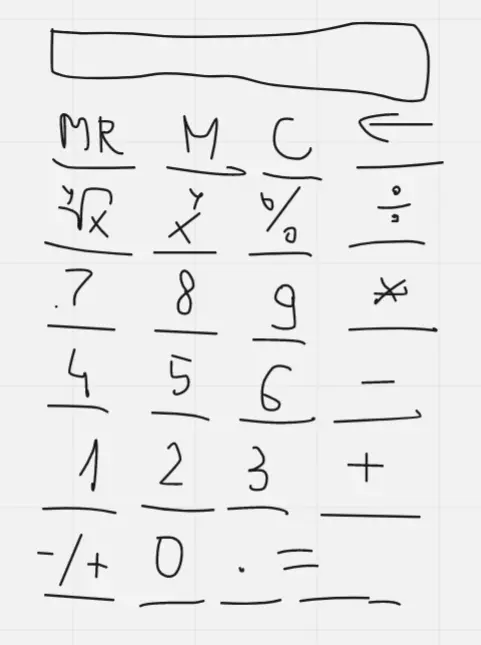 MR M C ←
ʸ√x xʸ % ÷
7 8 9 *
4 5 6 −
1 2 3 +
-/+ 0 . =